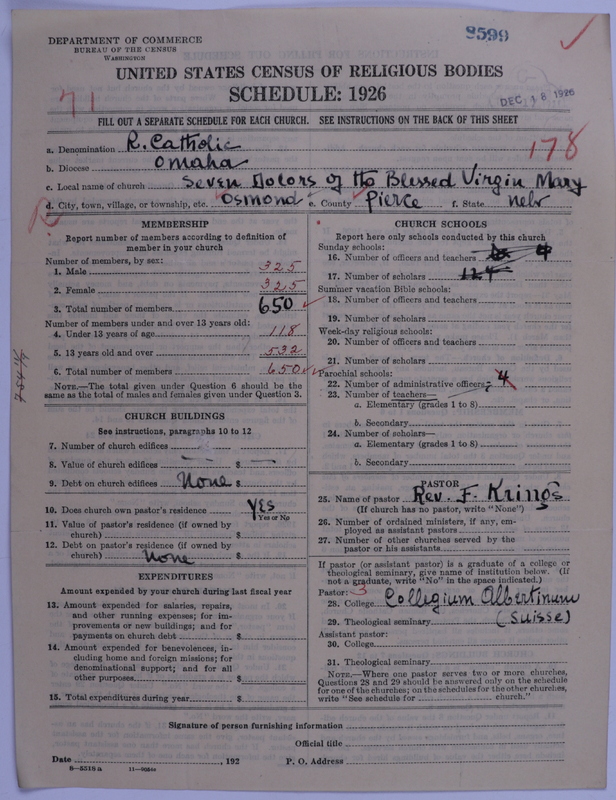 8599
DEPARTMENT OF COMMERCE
BUREAU OF THE CENSUS
WASHINGTON
UNITED STATES CENSUS OF RELIGIOUS BODIES
SCHEDULE: 1926
71
DEC 18 1926
FILL OUT A SEPARATE SCHEDULE FOR EACH CHURCH. SEE INSTRUCTIONS ON THE BACK OF THIS SHEET
178
a. Denomination R. Catholic
b. Diocese Omaha
c. Local name of church Seven Dolors of the Blessed Virgin Mary
d. City, town, village, or township, etc. Osmond e. County Pierce f. State nebr
R
MEMBERSHIP
Report number of members according to definition of
member in your church
Number of members, by sex:
1. Male 325
2. Female 325
3. Total number of members 650
Number of members under and over 13 years old:
4. Under 13 years of age 118
5. 13 years old and over 532
6. Total number of members 650
NOTE.—The total given under Question 6 should be the
same as the total of males and females given under Question 3.
CHURCH BUILDINGS
See instructions, paragraphs 10 to 12
7. Number of church edifices
8. Value of church edifices $ —
9. Debt on church edifices None $
10. Does church own pastor's residence YES
Yes or No
11. Value of pastor's residence (if owned by
church) $
12. Debt on pastor's residence (if owned by
church) None $
EXPENDITURES
Amount expended by church during last fiscal year
13. Amount expended for salaries, repairs,
and other running expenses; for im-
provements or new buildings; and for
payments on church debt $
14. Amount expended for benevolences, in-
cluding home and foreign missions; for
denominational support; and for all
other purposes $
15. Total expenditures during year $
CHURCH SCHOOLS
Report here only schools conducted by this church
Sunday schools:
16. Number of officers and teachers 4
17. Number of scholars 124
Summer vacation Bible schools:
18. Number of officers and teachers
19. Number of scholars
Week-day religious schools:
20. Number of officers and teachers
21. Number of scholars
Parochial schools:
22. Number of administrative officers 4
23. Number of teachers—
a. Elementary (grades 1 to 8)
b. Secondary
24. Number of scholars—
a. Elementary (grades 1 to 8)
b. Secondary
PASTOR
25. Name of pastor Rev. F. Krings
(If church has no pastor, write "None")
26. Number of ordained ministers, if any, em-
ployed as assistant pastors
27. Number of other churches served by the
pastor or his assistants
If pastor (or assistant pastor) is a graduate of a college or
theological seminary, give name of institution below. (If
not a graduate, write "No" in the space indicated.)
Pastor: 3
28. College Collegium Albertinum
29. Theological seminary (Suisse)
Assistant pastor:
30. College
31. Theological seminary
NOTE.—Where one pastor serves two or more churches,
Questions 28 and 29 should be answered only on the schedule
for one of the churches; on the schedules for the other churches,
write "See schedule for church."
Signature of person furnishing information
Official title
Date , 192 P. O. Address
8—5518a